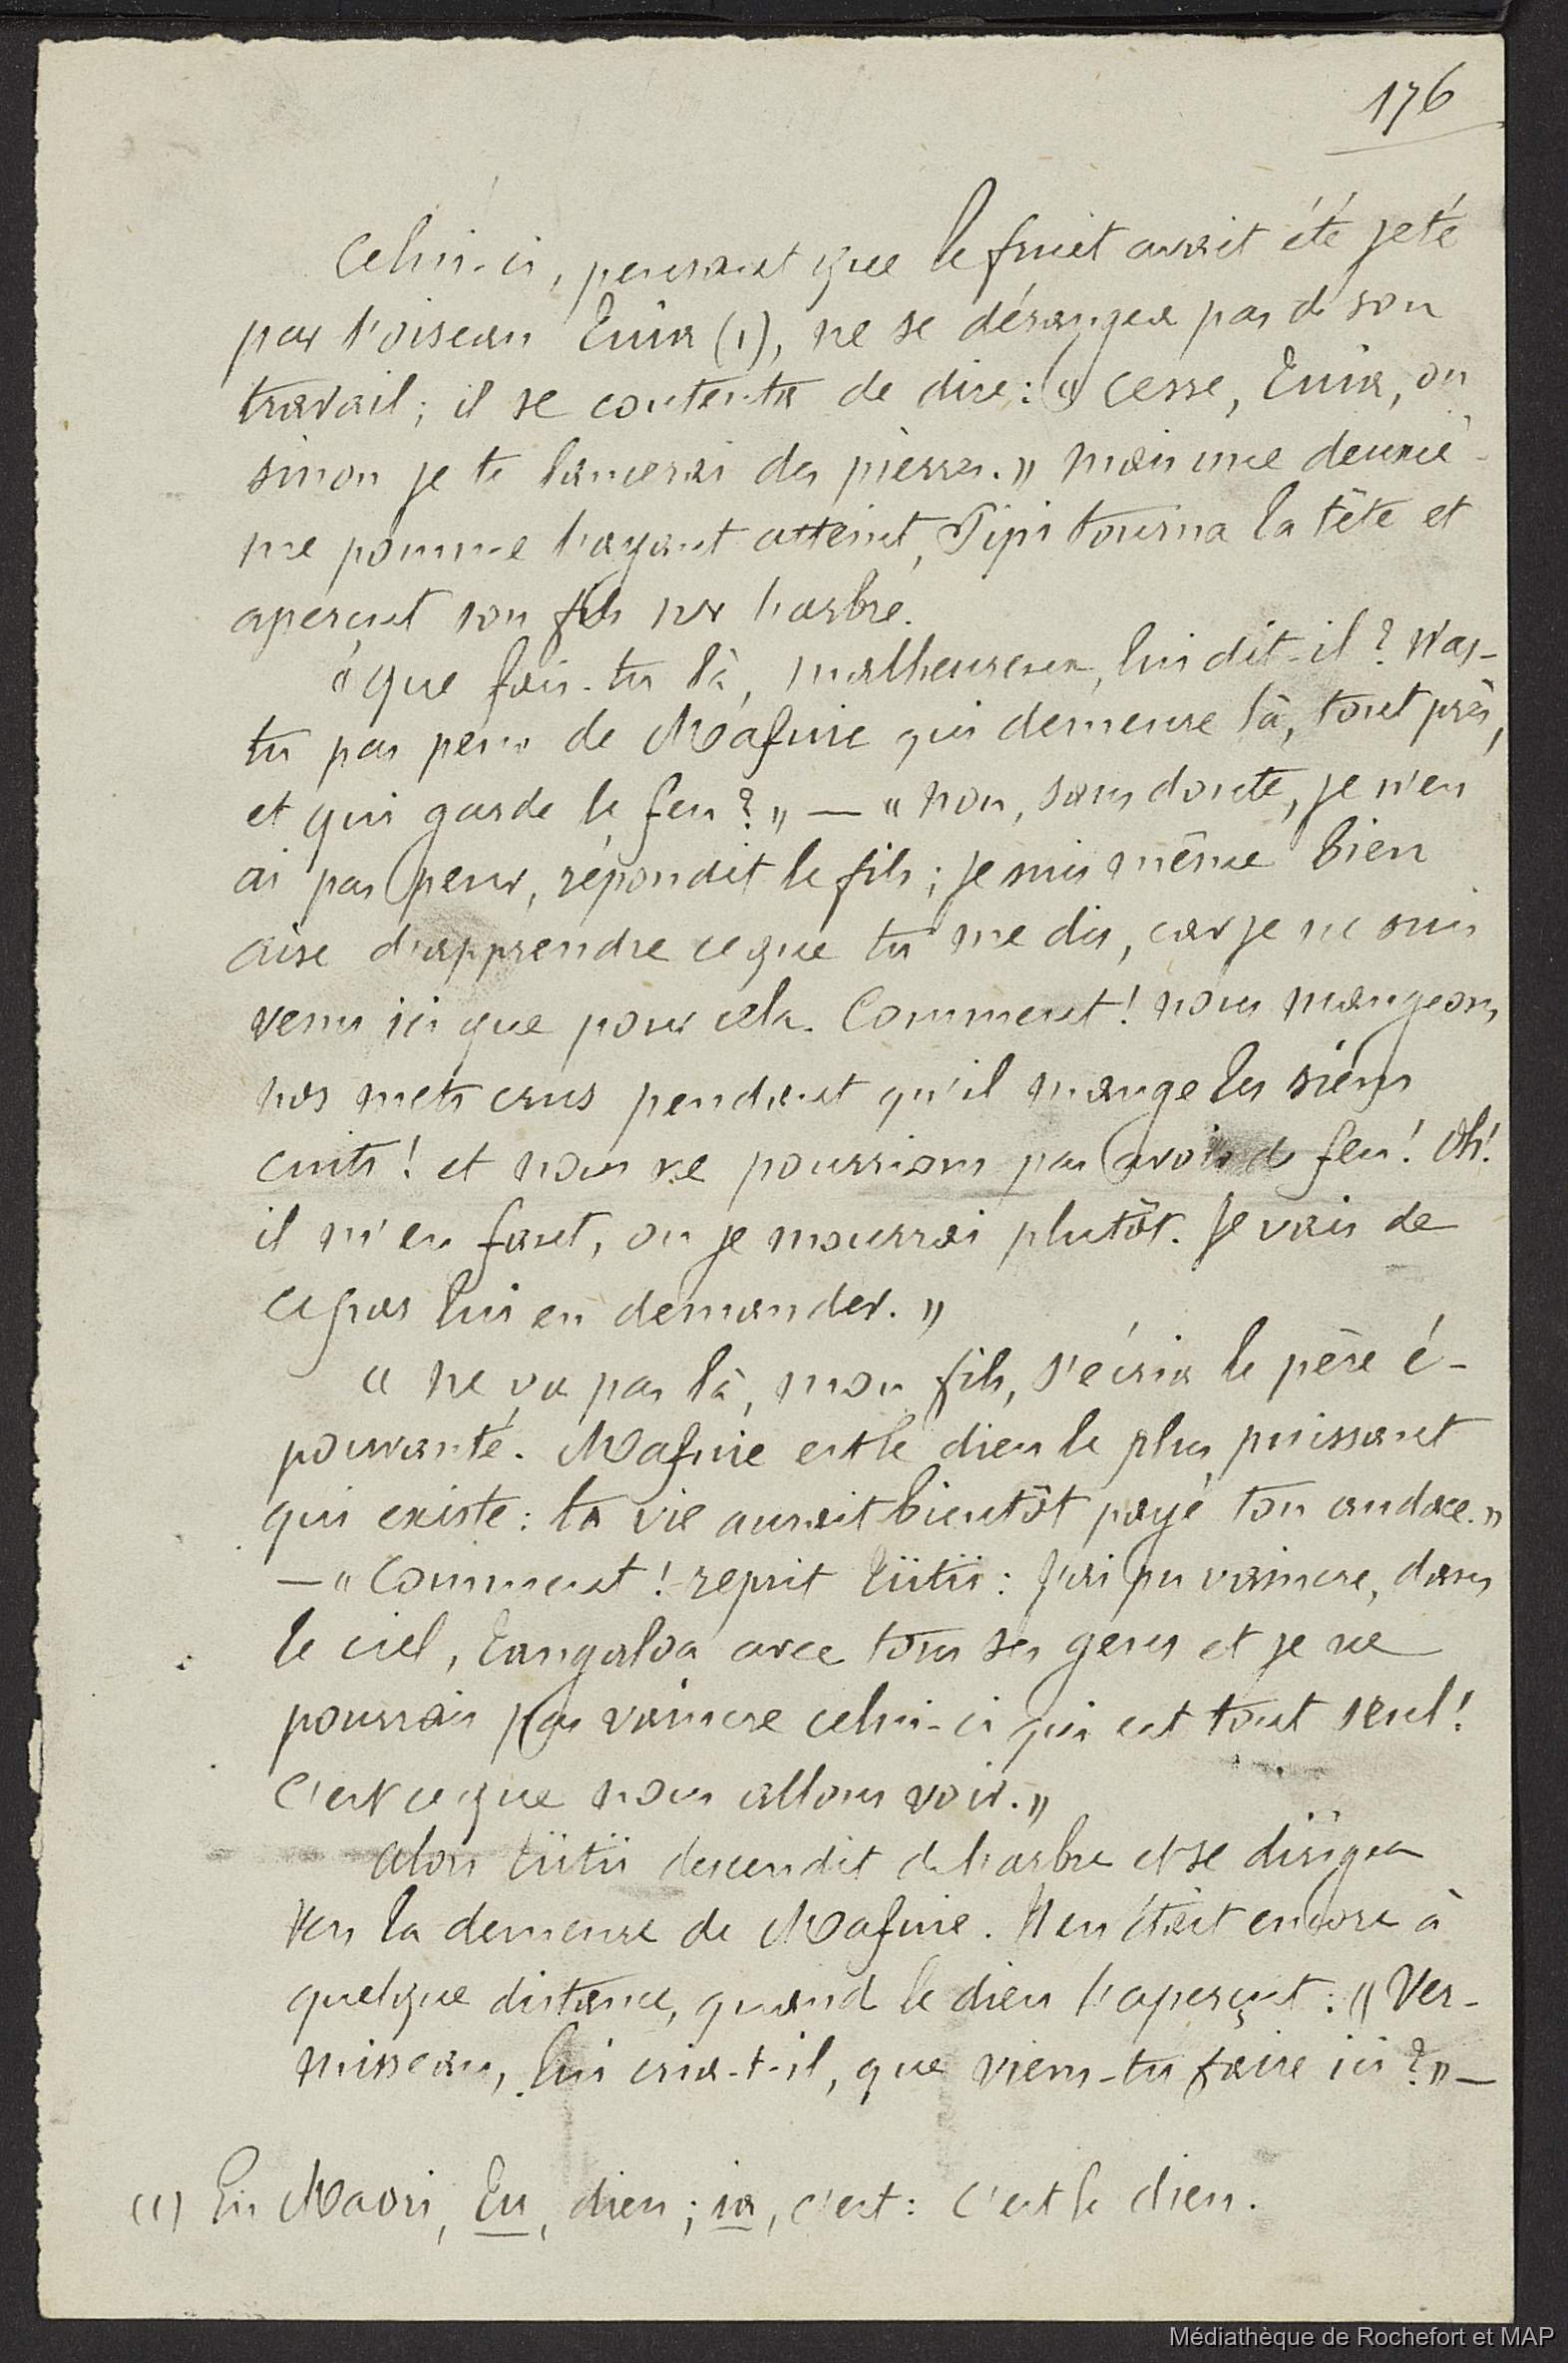 176
Celui-ci, pensant que le fruit avait été jeté
par l'oiseau Tuia (1), ne se dérangea pas de son
travail; il se contenta de dire: « Cesse, Tuia, ou
sinon je te lancerai des pierres. » Mais une deuxiè-
me pomme l'ayant atteint, Pipi tourna la tête et
aperçut son fils sur l'arbre.
« Que fais-tu là, malheureux, lui dit-il? N'as-
tu pas peur de Mafuie qui demeure là, tout près,
et qui garde le feu? » — « Non, sans doute, je n'en
ai pas peur, répondit le fils; je suis même bien
aise d'apprendre ce que tu me dis, car je ne suis
venu ici que pour cela. Comment! nous mangeons
nos mets crus pendant qu'il mange les siens
cuits! et nous ne pourrions pas avoir de feu! Oh!
il m'en faut, ou je mourrai plutôt. Je vais de
ce pas lui en demander. »
« Ne va pas là, mon fils, s'écria le père é-
pouvanté. Mafuie est le dieu le plus puissant
qui existe: ta vie aurait bientôt payé ton audace. »
— « Comment! reprit Tiitii: j'ai pu vaincre, dans
le ciel, Tangaloa avec tous ses gens et je ne
pourrais pas vaincre celui-ci qui est tout seul!
C'est ce que nous allons voir. »
Alors Tiitii descendit de l'arbre et se dirigea
vers la demeure de Mafuie. Il en était encore à
quelque distance, quand le dieu l'aperçut: « Ver-
misseau, lui cria-t-il, que viens-tu faire ici? » —
(1) En Maori, Tu, dieu; ia, c'est: C'est le dieu.
Médiathèque de Rochefort et MAP